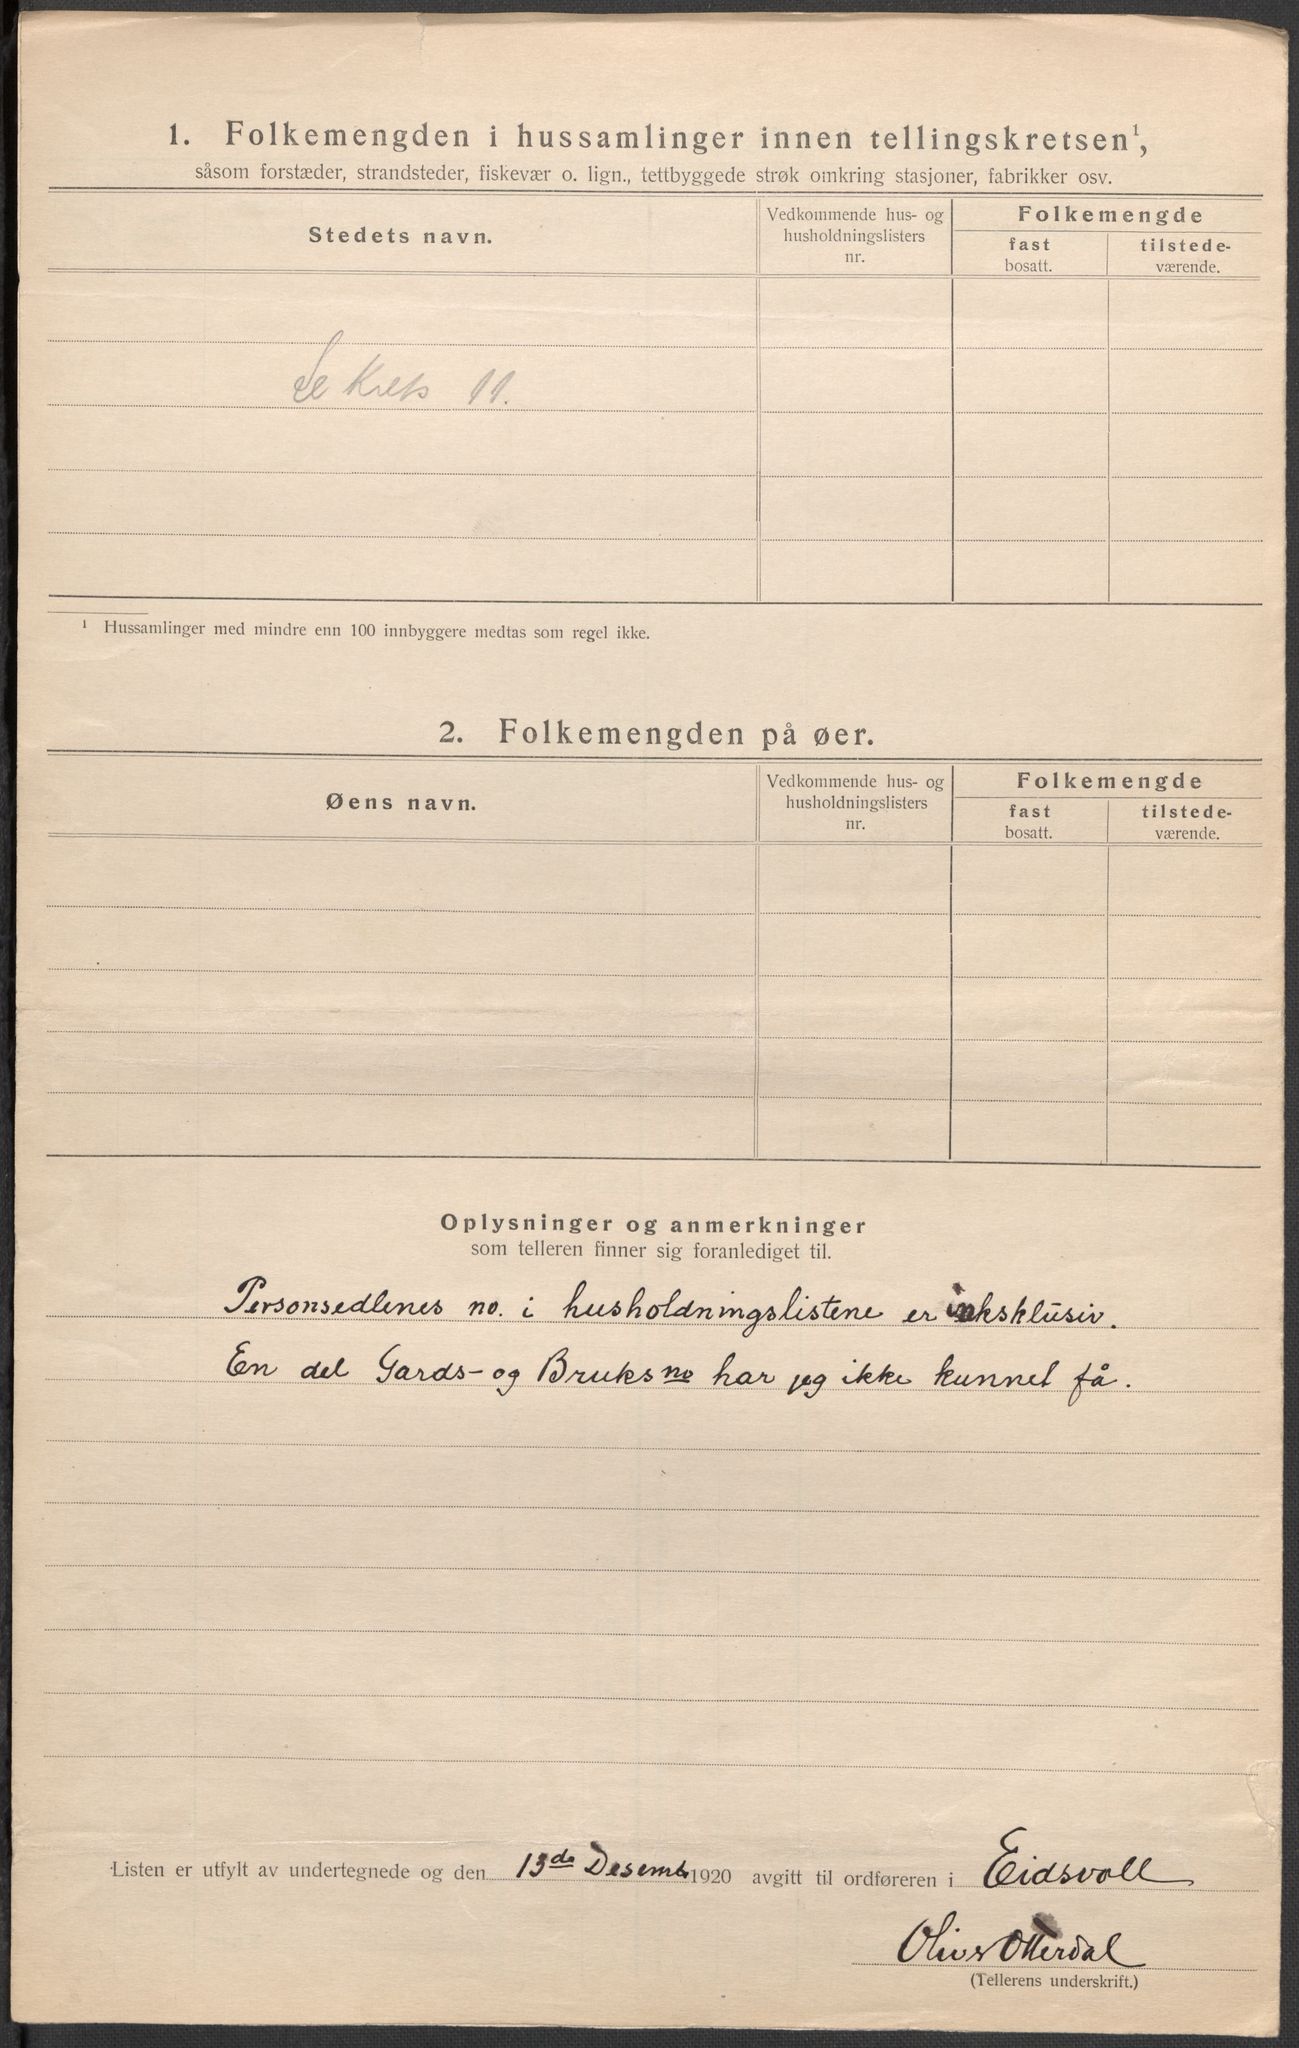 1. Folkemengden i hussamlinger innen tellingskretsen¹,
såsom forstæder, strandsteder, fiskevær o. lign., tettbyggede strøk omkring stasjoner, fabrikker osv.
Stedets navn.
Vedkommende hus- og
husholdningslisters
nr.
Folkemengde
fast
bosatt.
tilstede-
værende.
Se Krets 11.
¹ Hussamlinger med mindre enn 100 innbyggere medtas som regel ikke.
2. Folkemengden på øer.
Øens navn.
Vedkommende hus- og
husholdningslisters
nr.
Folkemengde
fast
bosatt.
tilstede-
værende.
Oplysninger og anmerkninger
som telleren finner sig foranlediget til.
Personsedlenes no. i husholdningslistene er inksklusiv.
En del Gards- og Bruksno har jeg ikke kunnet få.
Listen er utfylt av undertegnede og den 13de Desemb 1920 avgitt til ordføreren i Eidsvoll
Oliver Otterdal
(Tellerens underskrift.)